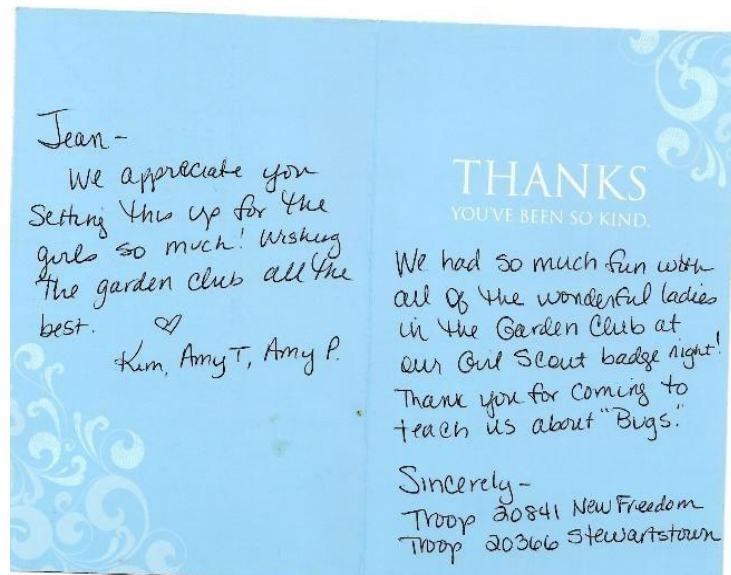 Jean -
We appreciate you
setting this up for the
girls so much! Wishing
the garden club all the
best. ♡
Kim, Amy T, Amy P.
THANKS
YOU'VE BEEN SO KIND.
We had so much fun with
all of the wonderful ladies
in the Garden Club at
our Girl Scout badge night!
Thank you for coming to
teach us about "Bugs."
Sincerely -
Troop 20841 New Freedom
Troop 20366 Stewartstown